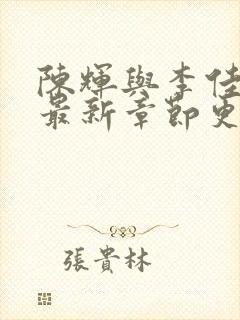 陳輝與李佳
最新章節更
張貴林